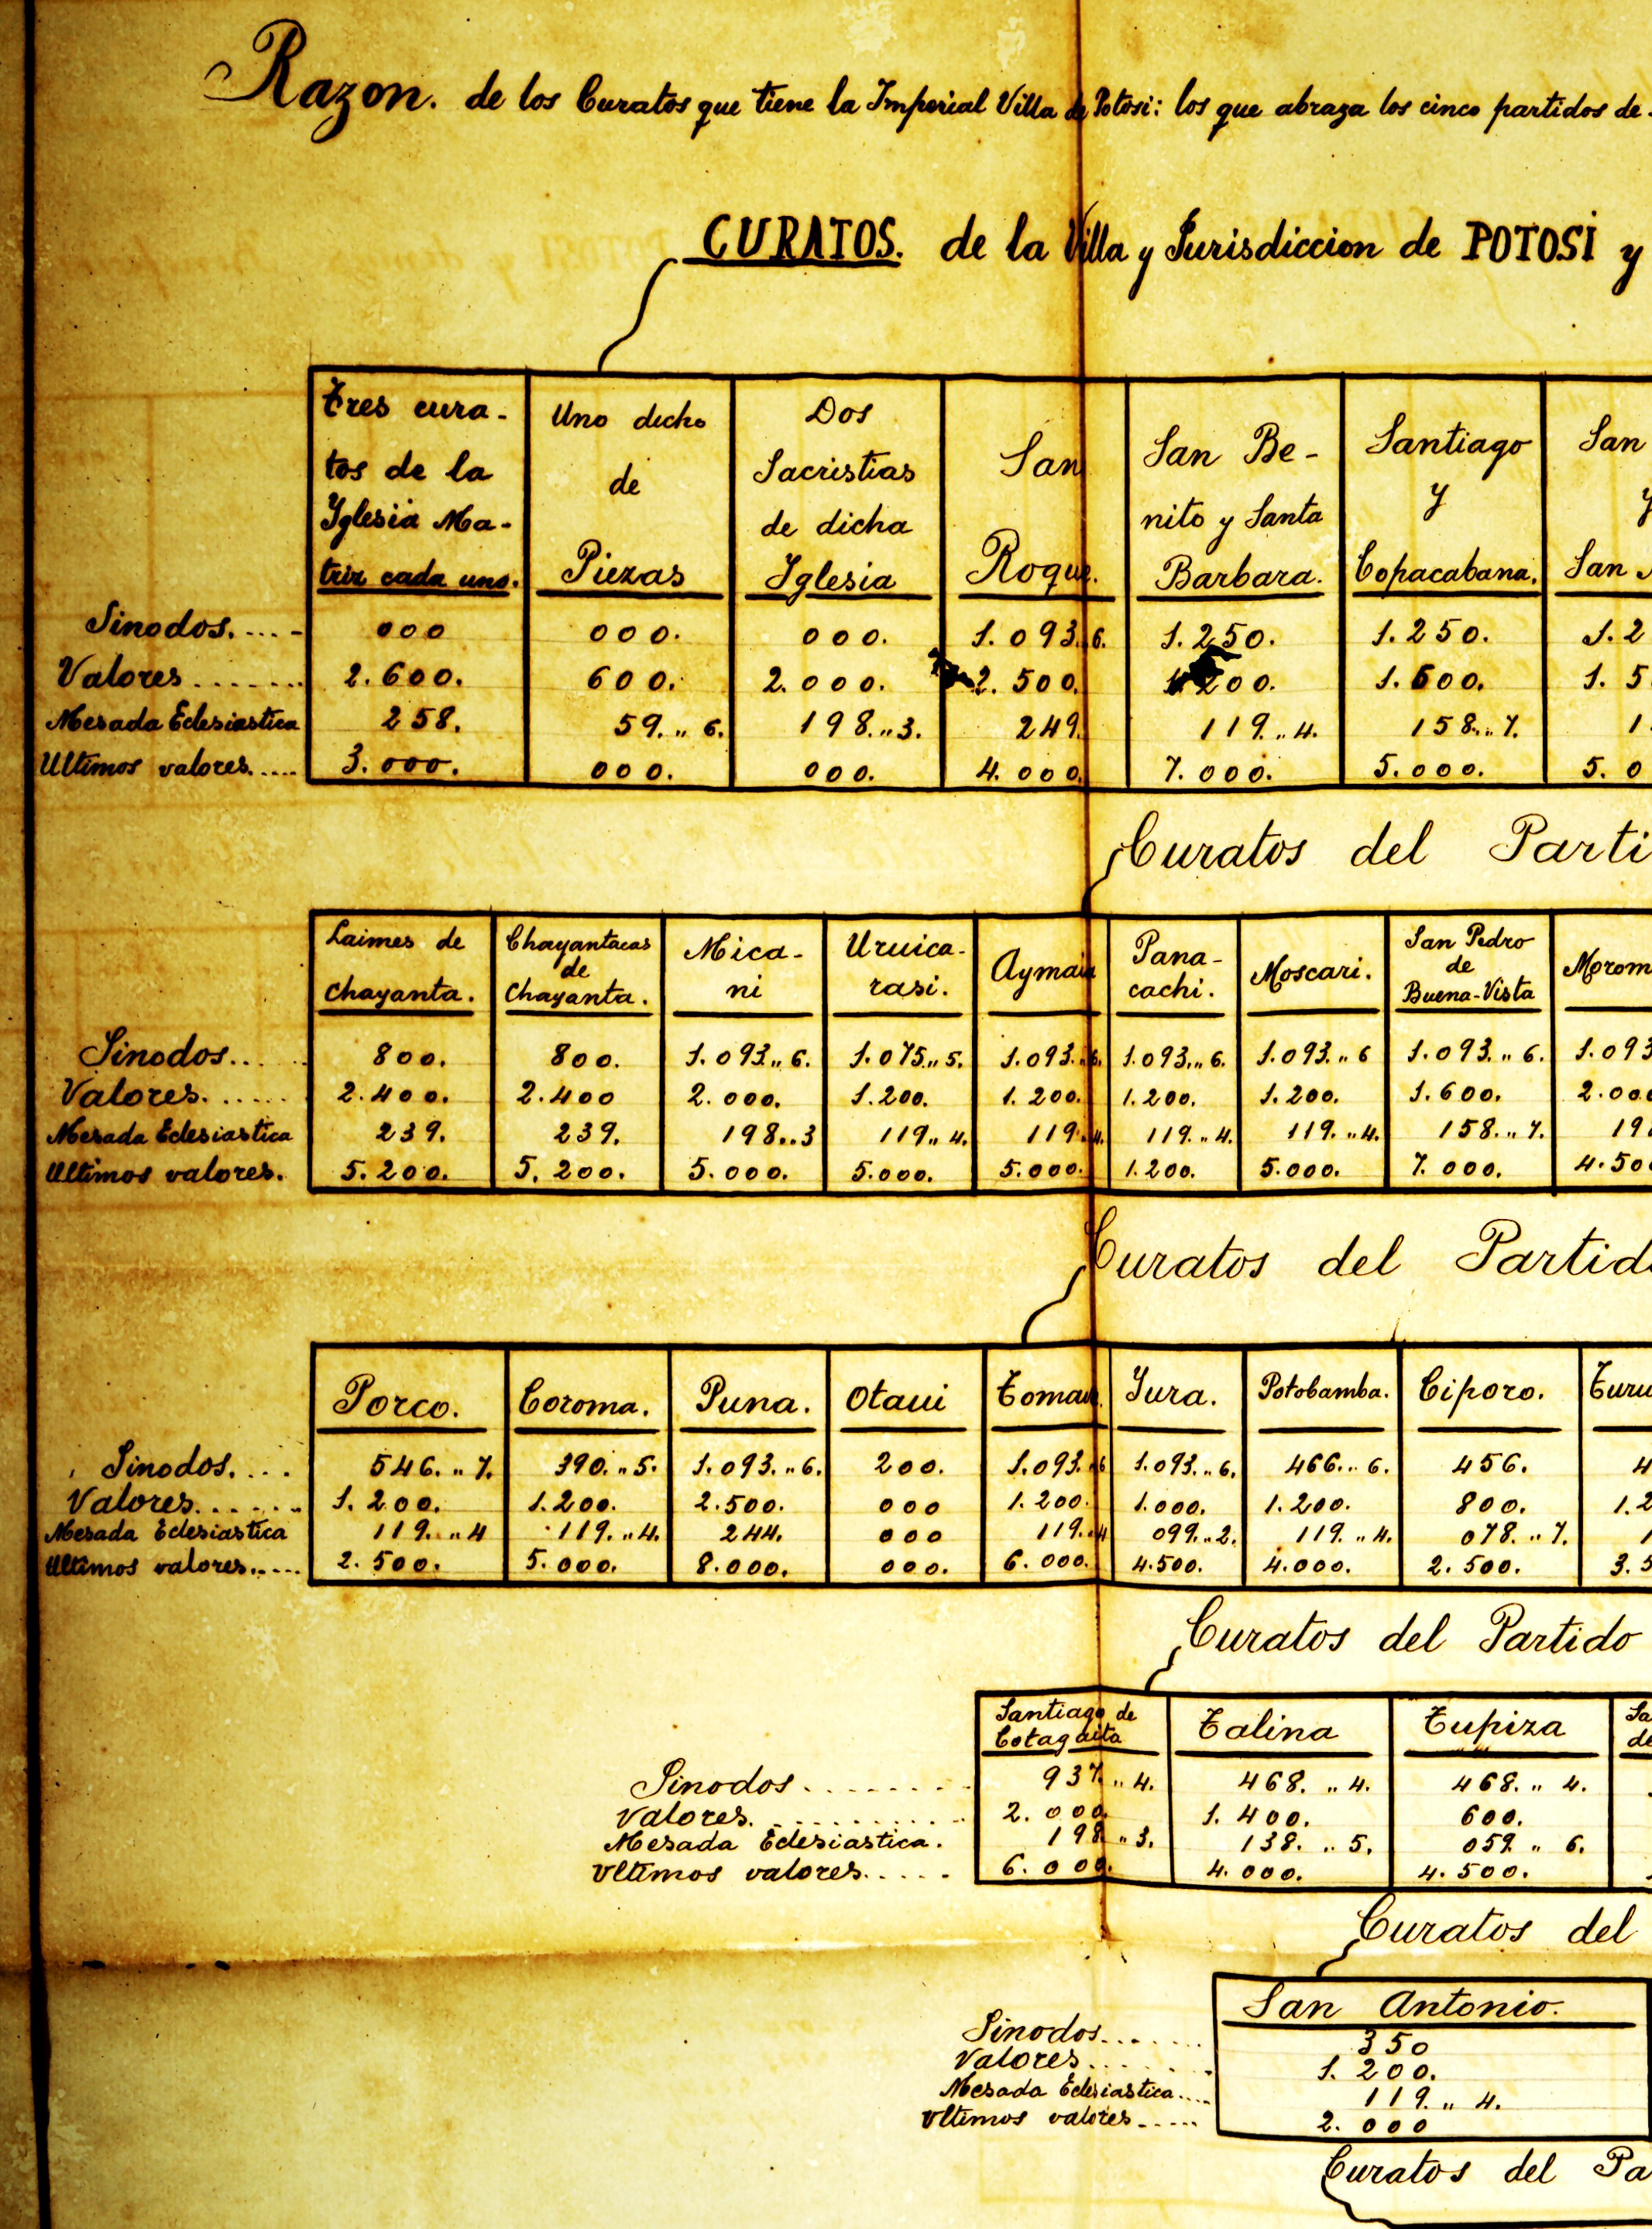 Razon. de los Curatos que tiene la Imperial Villa de Potosi: los que abraza los cinco partidos de
CURATOS. de la Villa y Jurisdiccion de POTOSI y
Tres cura-
tos de la
Yglesia Ma-
triz cada uno.
Uno dicho
de
Piezas
Dos
Sacristias
de dicha
Yglesia
San
Roque.
San Be-
nito y Santa
Barbara.
Santiago
y
Copacabana.
San
y
San
Sinodos..... 000 000. 000. 1.093.,,6. 1.250. 1.250. 1.2
Valores....... 2.600. 600. 2.000. 2.500. 1.200. 1.600. 1.5
Mesada Eclesiastica 258. 59.,,6. 198.,,3. 249. 119.,,4. 158.,,7. 1
Ultimos valores..... 3.000. 000. 000. 4.000. 7.000. 5.000. 5.0
Curatos del Parti
Laimes de
Chayanta.
Chayantacas
de
Chayanta.
Mica-
ni
Uruica-
rasi.
Aymaia
Pana-
cachi.
Moscari.
San Pedro
de
Buena-Vista
Morom
Sinodos.... 800. 800. 1.093.,,6. 1.075.,,5. 1.093.,,6. 1.093.,,6. 1.093.,,6 1.093.,,6. 1.093
Valores...... 2.400. 2.400 2.000. 1.200. 1.200. 1.200. 1.200. 1.600. 2.000
Mesada Eclesiastica 239. 239. 198.,,3 119.,,4. 119.,,4. 119.,,4. 119.,,4. 158.,,7. 19
Ultimos valores. 5.200. 5.200. 5.000. 5.000. 5.000. 1.200. 5.000. 7.000. 4.50
Curatos del Partid
Porco. Coroma. Puna. Otaui Tomave. Yura. Potobamba. Ciporo. Turu
Sinodos.... 546.,,7. 390.,,5. 1.093.,,6. 200. 1.093.,,6 1.093.,,6. 466.,,6. 456. 4
Valores...... 1.200. 1.200. 2.500. 000 1.200. 1.000. 1.200. 800. 1.2
Mesada Eclesiastica 119.,,4 119.,,4. 244. 000 119.,,4 099.,,2. 119.,,4. 078.,,7. 1
Ultimos valores..... 2.500. 5.000. 8.000. 000. 6.000. 4.500. 4.000. 2.500. 3.5
Curatos del Partido
Santiago de
Cotagaita
Talina
Tupiza
Sa
de
Sinodos........ 937.,,4. 468.,,4. 468.,,4.
Valores.......... 2.000. 1.400. 600.
Mesada Eclesiastica. 198.,,3. 138.,,5. 059.,,6.
Ultimos valores..... 6.000. 4.000. 4.500.
Curatos del
San Antonio.
Sinodos...... 350
Valores...... 1.200.
Mesada Eclesiastica.... 119.,,4.
Ultimos valores..... 2.000
Curatos del Pa